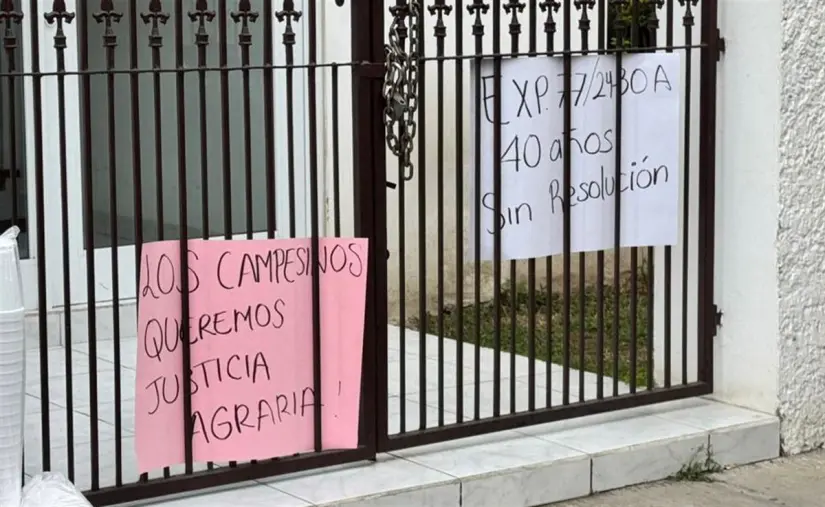 LOS CAMPESINOS
QUEREMOS
JUSTICIA
AGRARIA!
EXP. 77/2430A
40 años
Sin Resolución